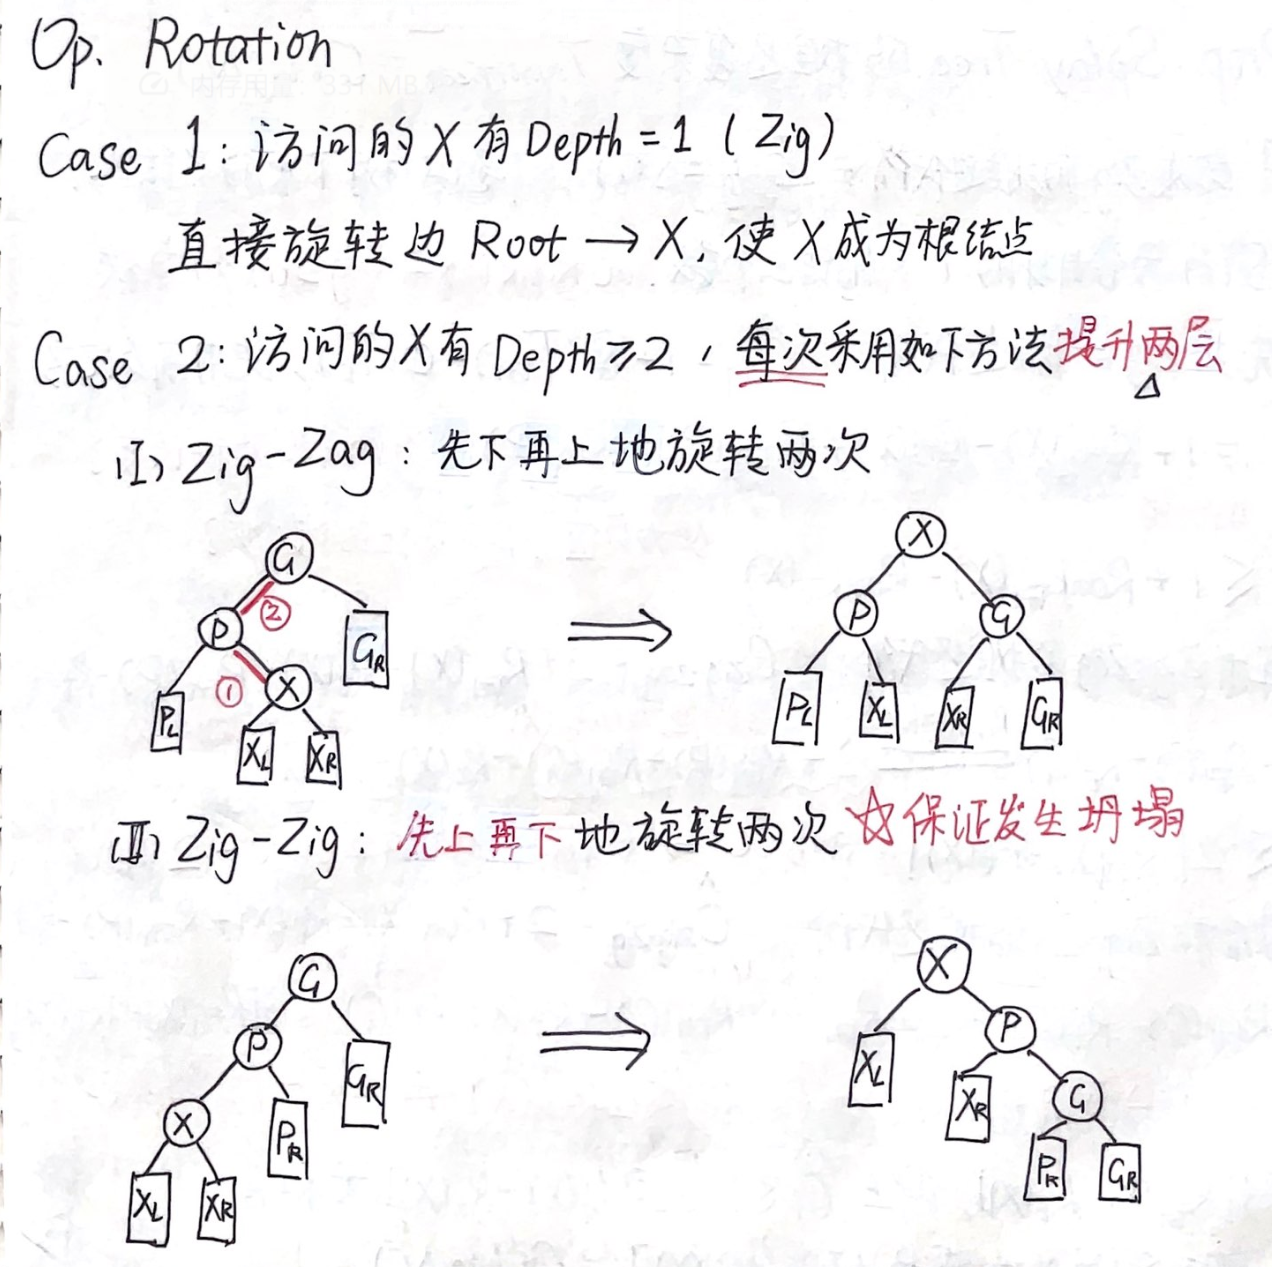 Op. Rotation
Case 1: 访问的X有Depth=1 (Zig)
直接旋转边 Root → X, 使X成为根结点
Case 2: 访问的X有Depth≥2, 每次采用如下方法提升两层
(I) Zig-Zag: 先下再上地旋转两次
G
P
②
G_R
①
X
P_L
X_L
X_R
⇒
X
P
G
P_L
X_L
X_R
G_R
(II) Zig-Zig: 先上再下地旋转两次 ☆保证发生坍塌
G
P
G_R
X
P_R
X_L
X_R
⇒
X
P
X_L
X_R
G
P_R
G_R